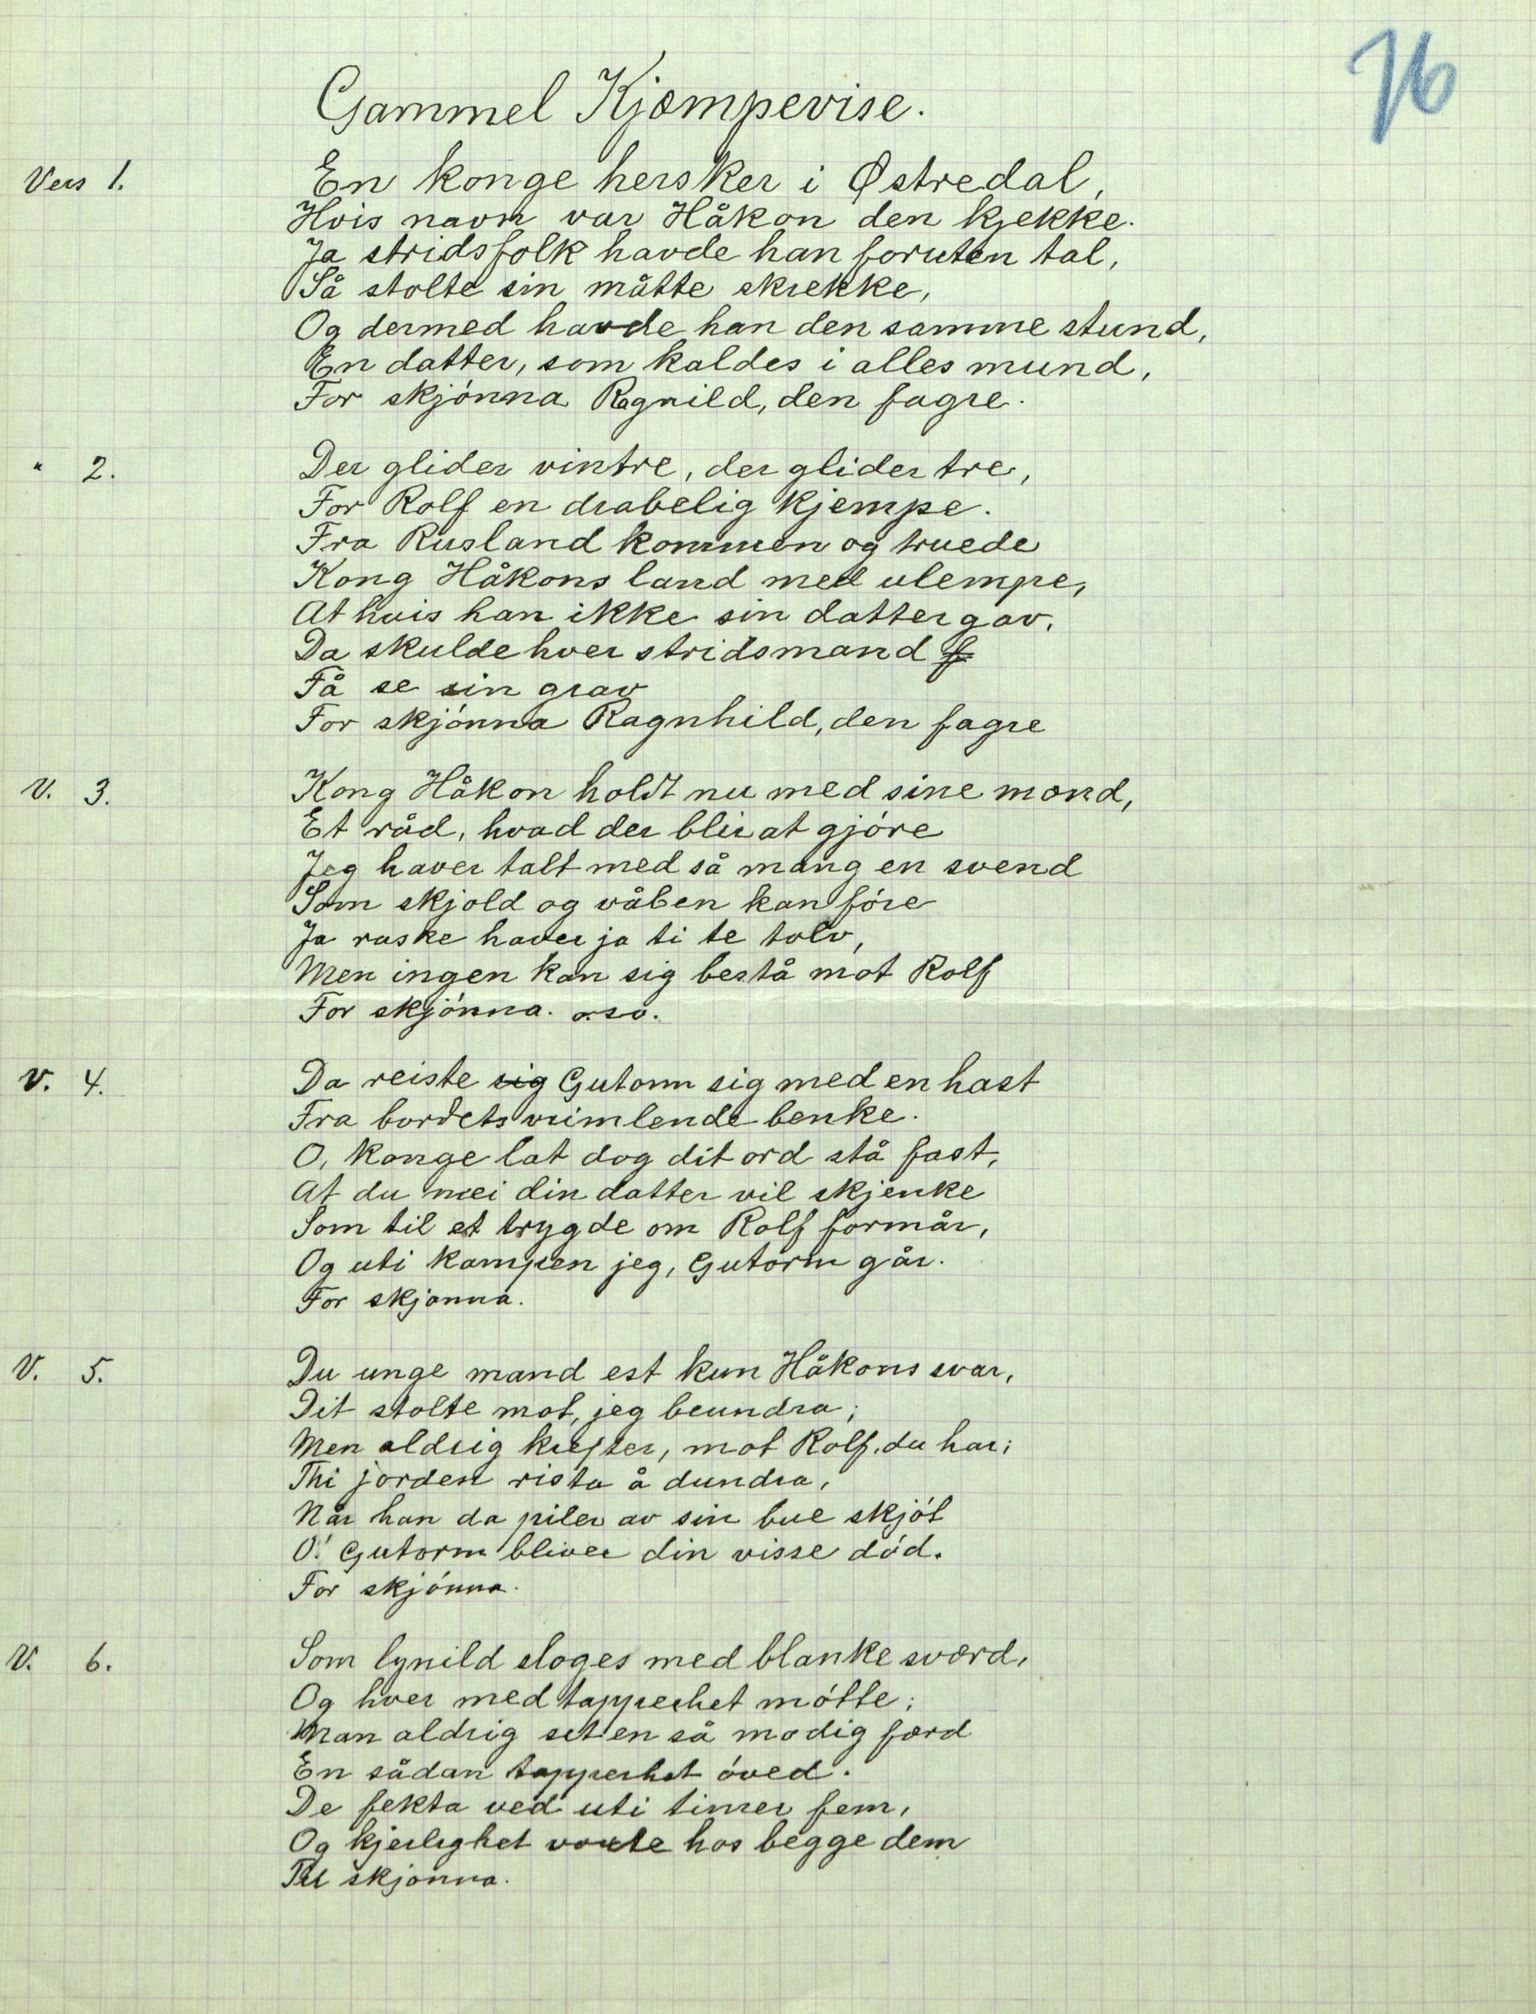 76
Gammel Kjæmpevise.
Vers 1. En konge hersker i Østredal,
Hvis navn var Håkon den kjekke.
Ja stridsfolk havde han foruten tal,
Så stolte sin måtte skrekke,
Og dermed havde han den samme stund,
En datter, som kaldes i alles mund,
For skjónna Ragnild, den fagre.
" 2. Der glider vintre, der glider tre,
For Rolf en drabelig kjempe.
Fra Rusland kommen og truede
Kong Håkons land med ulempe,
At hvis han ikke sin datter gav,
Da skulde hver stridsmand f
Få se sin grav
For skjónna Ragnhild, den fagre
V. 3. Kong Håkon holdt nu med sine mænd,
Et råd, hvad der blir at gjóre
Jeg haver talt med så mang en svend
Som skjold og våben kan fóre
Ja raske haver ja ti te tolv,
Men ingen kan sig bestå mot Rolf
For skjónna. o.s.v.
V. 4. Da reiste sig Gutorm sig med en hast
Fra bordets vrimlende benke.
O, konge lat dog dit ord stå fast,
At du mei din datter vil skjenke
Som til et trygde om Rolf formår,
Og uti kampen jeg, Gutorm går.
For skjonna.
V. 5. Du unge mand est kun Håkons svar,
Dit stolte mot, jeg beundra;
Men aldrig krefter, mot Rolf, du har;
Thi jorden rista å dundra,
Når han da piler av sin bue skjót
O! Gutorm bliver din visse dód.
For skjónna.
V. 6. Som lynild sloges med blanke sværd,
Og hver med tapperhet mótte;
Man aldrig set en så modig færd
En sådan tapperhet óved.
De fekta ved uti timer fem,
Og kjerlighet voxte hos begge dem
Til skjonna.